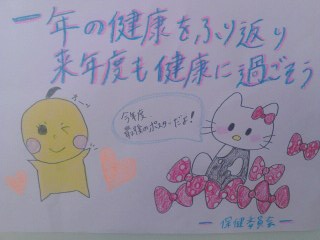 一年の健康をふり返り
来年度も健康に過ごそう
今年度
最後のポスターだよ!
ー保健委員会ー